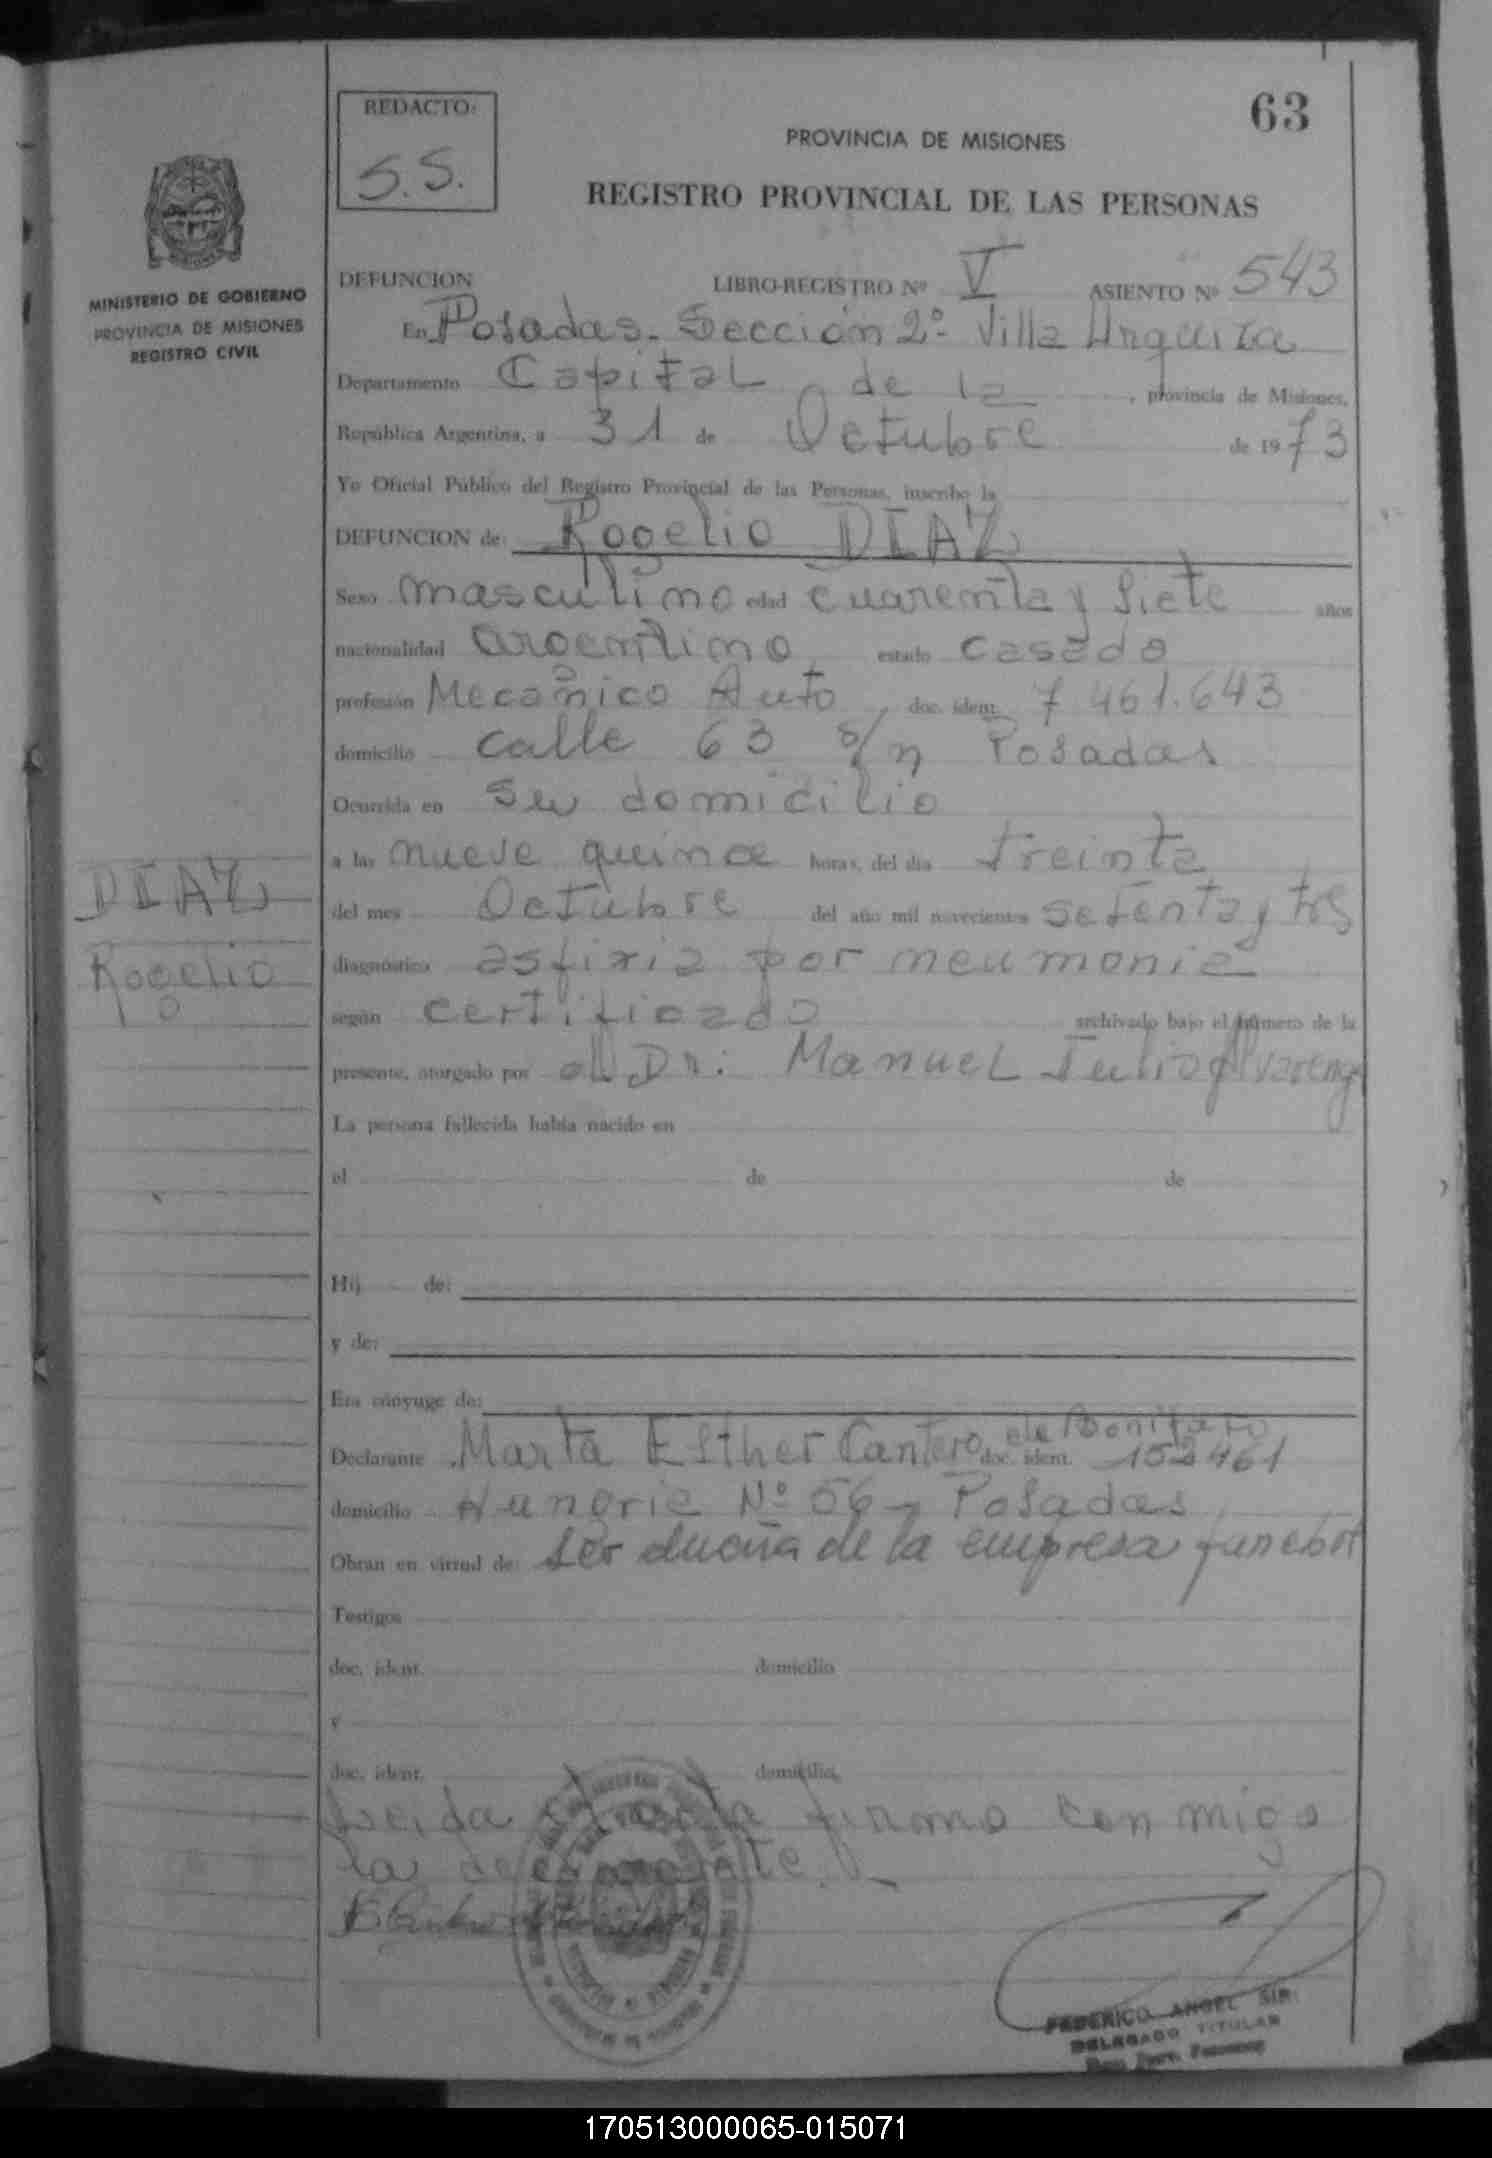 63
REDACTO:
S.S.
PROVINCIA DE MISIONES
REGISTRO PROVINCIAL DE LAS PERSONAS
MINISTERIO DE GOBIERNO
PROVINCIA DE MISIONES
REGISTRO CIVIL
DEFUNCION LIBRO-REGISTRO Nº V ASIENTO Nº 543
En Posadas. Sección 2º Villa Urquiza
Departamento Capital de la, provincia de Misiones,
República Argentina, a 31 de Octubre de 1973
Yo Oficial Público del Registro Provincial de las Personas, inscribo la
DEFUNCION de: Rogelio DIAZ
Sexo masculino edad cuarenta y siete años
nacionalidad argentino, estado casado
profesión Mecánico Auto, doc. ident. 7 461.643
domicilio calle 63 s/n Posadas
Ocurrida en su domicilio
a las nueve quince horas, del día treinta
del mes Octubre del año mil novecientos setenta y tres
diagnóstico asfixia por neumonia
según certificado archivado bajo el número de la
presente, otorgado por el Dr. Manuel Julio Alvarenga
DIAZ
Rogelio
La persona fallecida había nacido en
el de de
Hij de:
y de:
Era cónyuge de:
Declarante Marta Esther Cantero de Bonifato doc. ident. 152461
domicilio Hungria Nº 56 - Posadas
Obran en virtud de: ser dueña de la empresa funebre
Testigos
doc. ident. domicilio
y
doc. ident. domicilio
Leida el acta firma con migo
la declarante.
FEDERICO ANGEL SIR
DELEGADO TITULAR
170513000065-015071